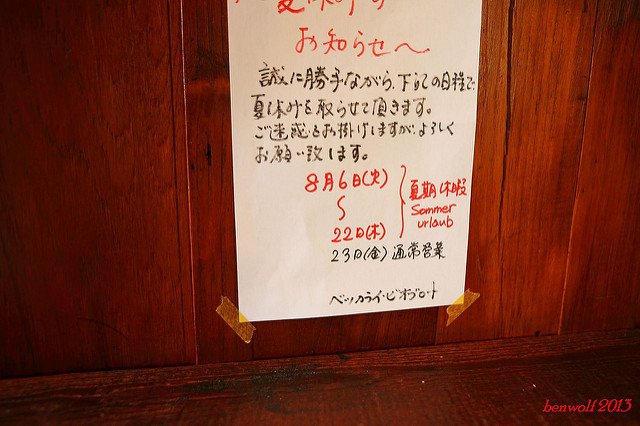 夏休みの
お知らせ〜
誠に勝手ながら、下記の日程で
夏休みを取らせて頂きます。
ご迷惑をお掛けしますが、よろしく
お願い致します。
8月6日(火)
〜
22日(木)
夏期休暇
Sommer
urlaub
23日(金) 通常営業
ベッカライ・ビオブロート
benwolf 2013